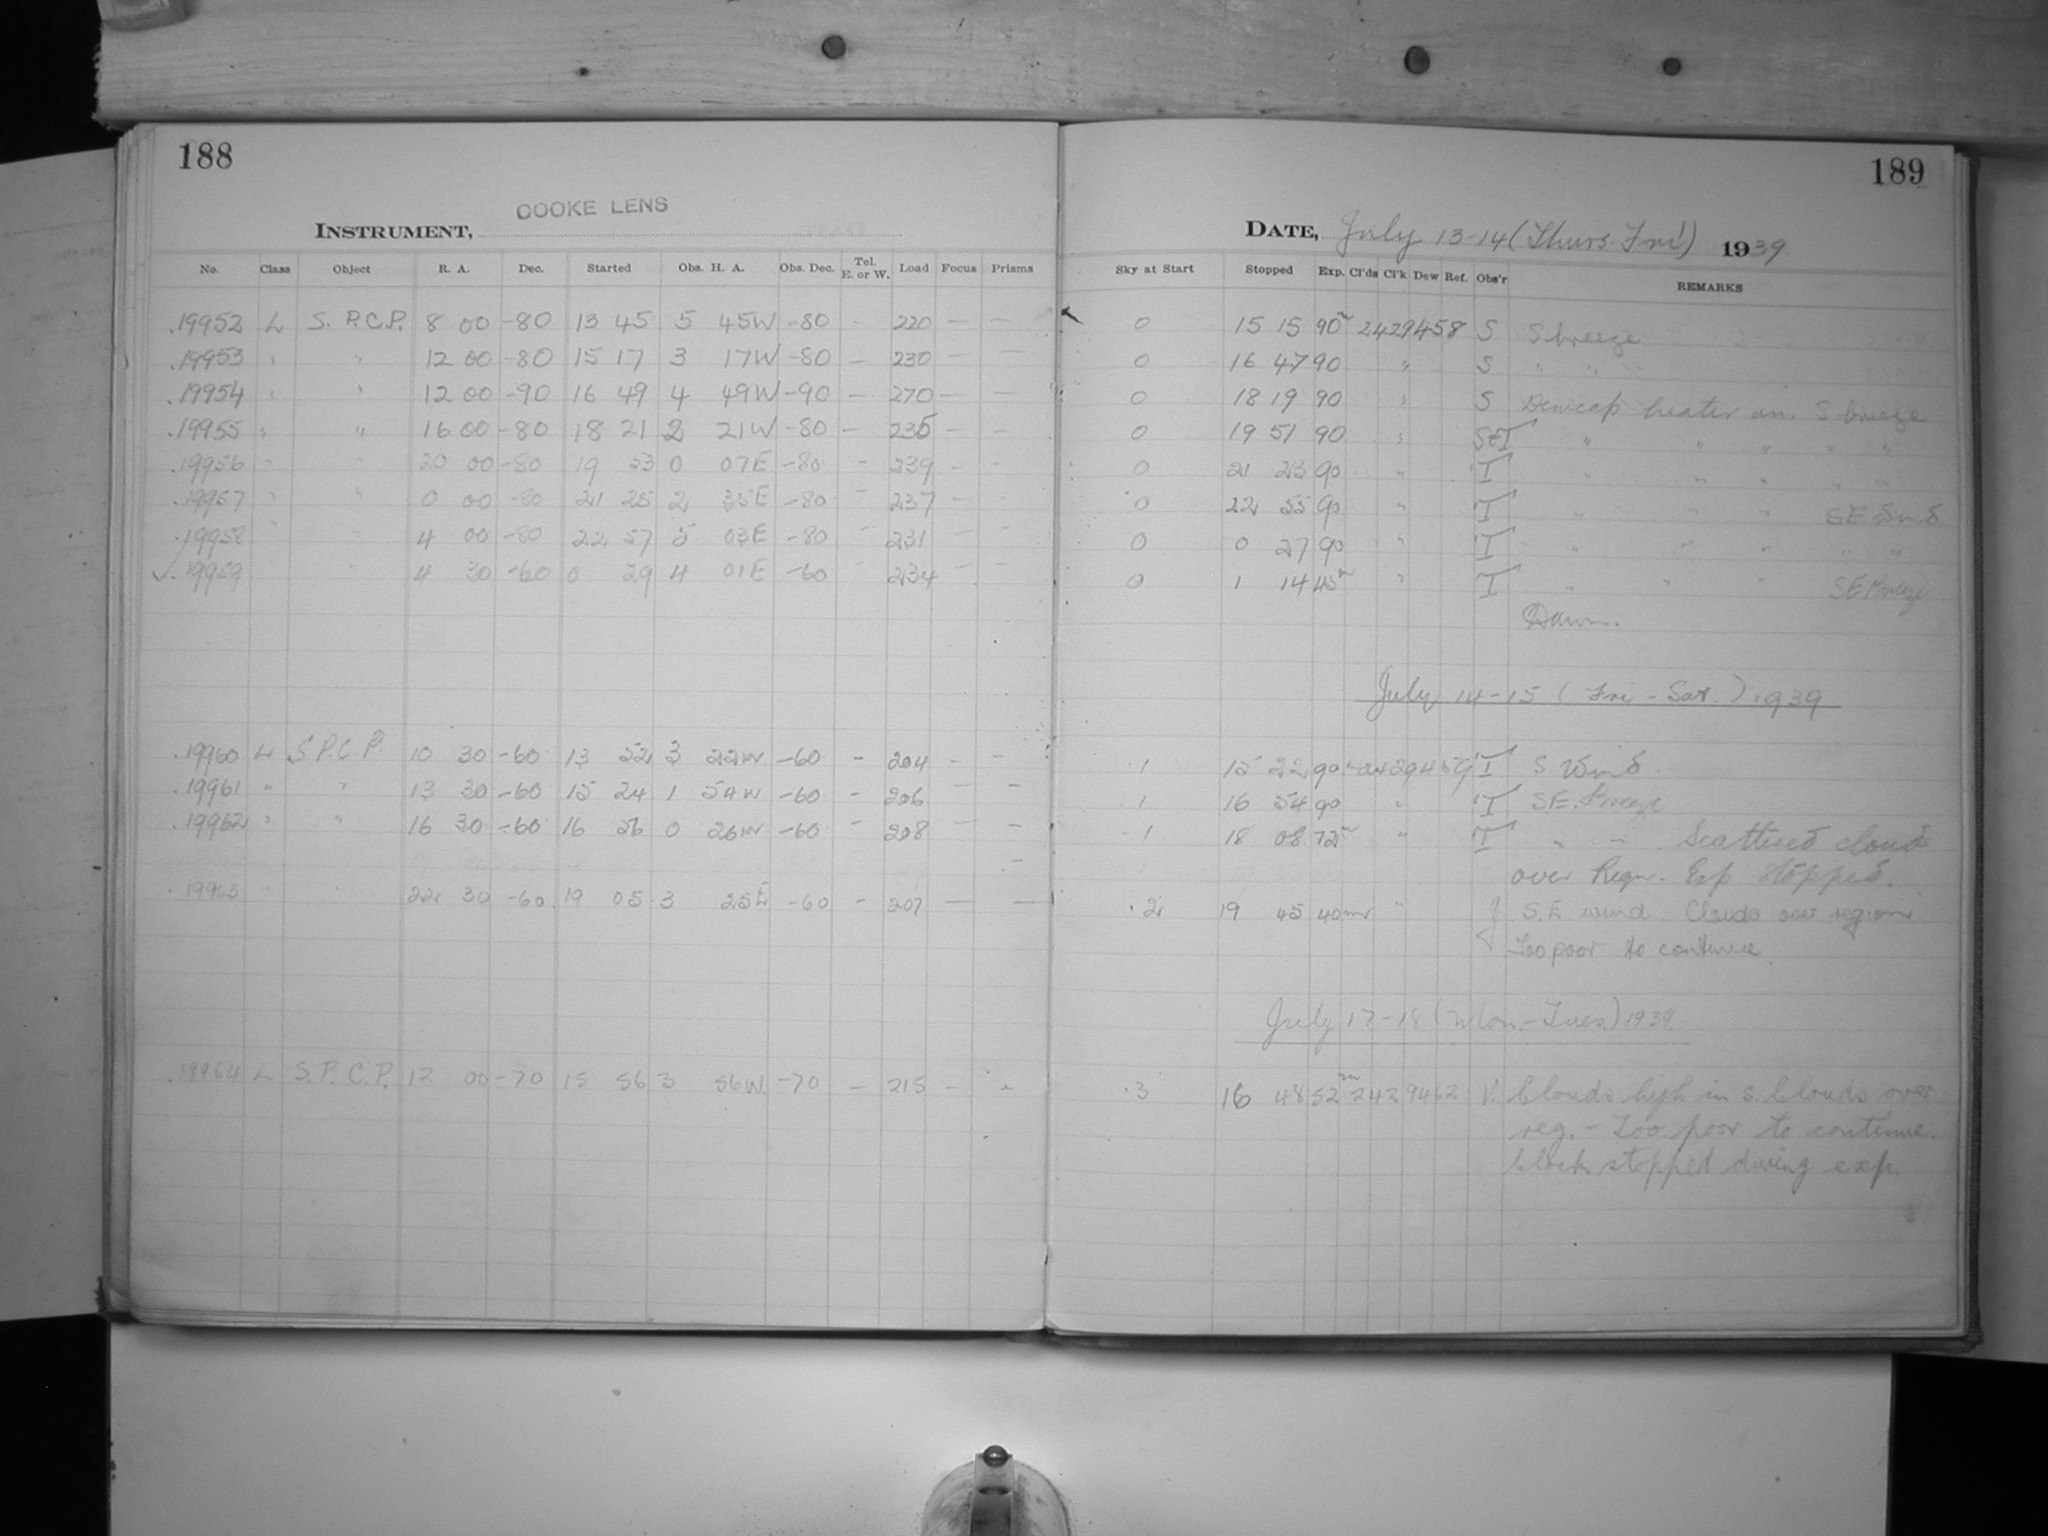 188
COOKE LENS
INSTRUMENT,
No. Class Object R. A. Dec. Started Obs. H. A. Obs. Dec. Tel. E. or W. Load Focus Prisms
19952 L S. P.C.P. 8 00 -80 13 45 5 45W -80 - 220 - -
19953 " " 12 00 -80 15 17 3 17W -80 - 230 - -
19954 " " 12 00 -90 16 49 4 49W -90 - 270 - -
19955 " " 16 00 -80 18 21 2 21W -80 - 235 - -
19956 " " 20 00 -80 19 53 0 07E -80 - 239 - -
19957 " " 0 00 -80 21 25 2 35E -80 - 237 - -
19958 " " 4 00 -80 22 57 5 03E -80 - 231 - -
✓ 19959 " 4 30 -60 0 29 4 01E -60 - 234 - -
19960 L S.P.C.P. 10 30 -60 13 52 3 22W -60 - 204 - -
19961 " " 13 30 -60 15 24 1 54W -60 - 206 - -
19962 " " 16 30 -60 16 56 0 26W -60 - 208 - -
19963 " " 22 30 -60 19 05 3 25E -60 - 207 - -
19964 L S.P.C.P. 12 00 -70 15 56 3 56W -70 - 215 - -
189
DATE, July 13-14 (Thurs-Fri) 1939
Sky at Start Stopped Exp. Cl'ds Cl'k Dew Ref. Obs'r REMARKS
0 15 15 90m 2429458 S S breeze
0 16 47 90 " S " "
0 18 19 90 " S Dewcap heater on. S breeze
0 19 51 90 " S&T " " " " "
0 21 23 90 " T " " " " "
0 22 55 90 " T " " " SE Wind
0 0 27 90 " T " " " " "
0 1 14 45m " T " " " SE Breeze
Dawn.
July 14-15 (Fri-Sat.) 1939
1 15 22 90m 2429459 T S. Wind.
1 16 54 90 " T S.E. Breeze
1 18 08 72m " T " " Scattered cloud
over Regn. Exp Stopped.
.2 19 45 40m " J S.E. wind. Clouds over region
Too poor to continue.
July 17-18 (Mon.-Tues.) 1939
.3 16 48 52m 2429462 V. Clouds high in S. Clouds over
reg. - Too poor to continue.
Clock stopped during exp.